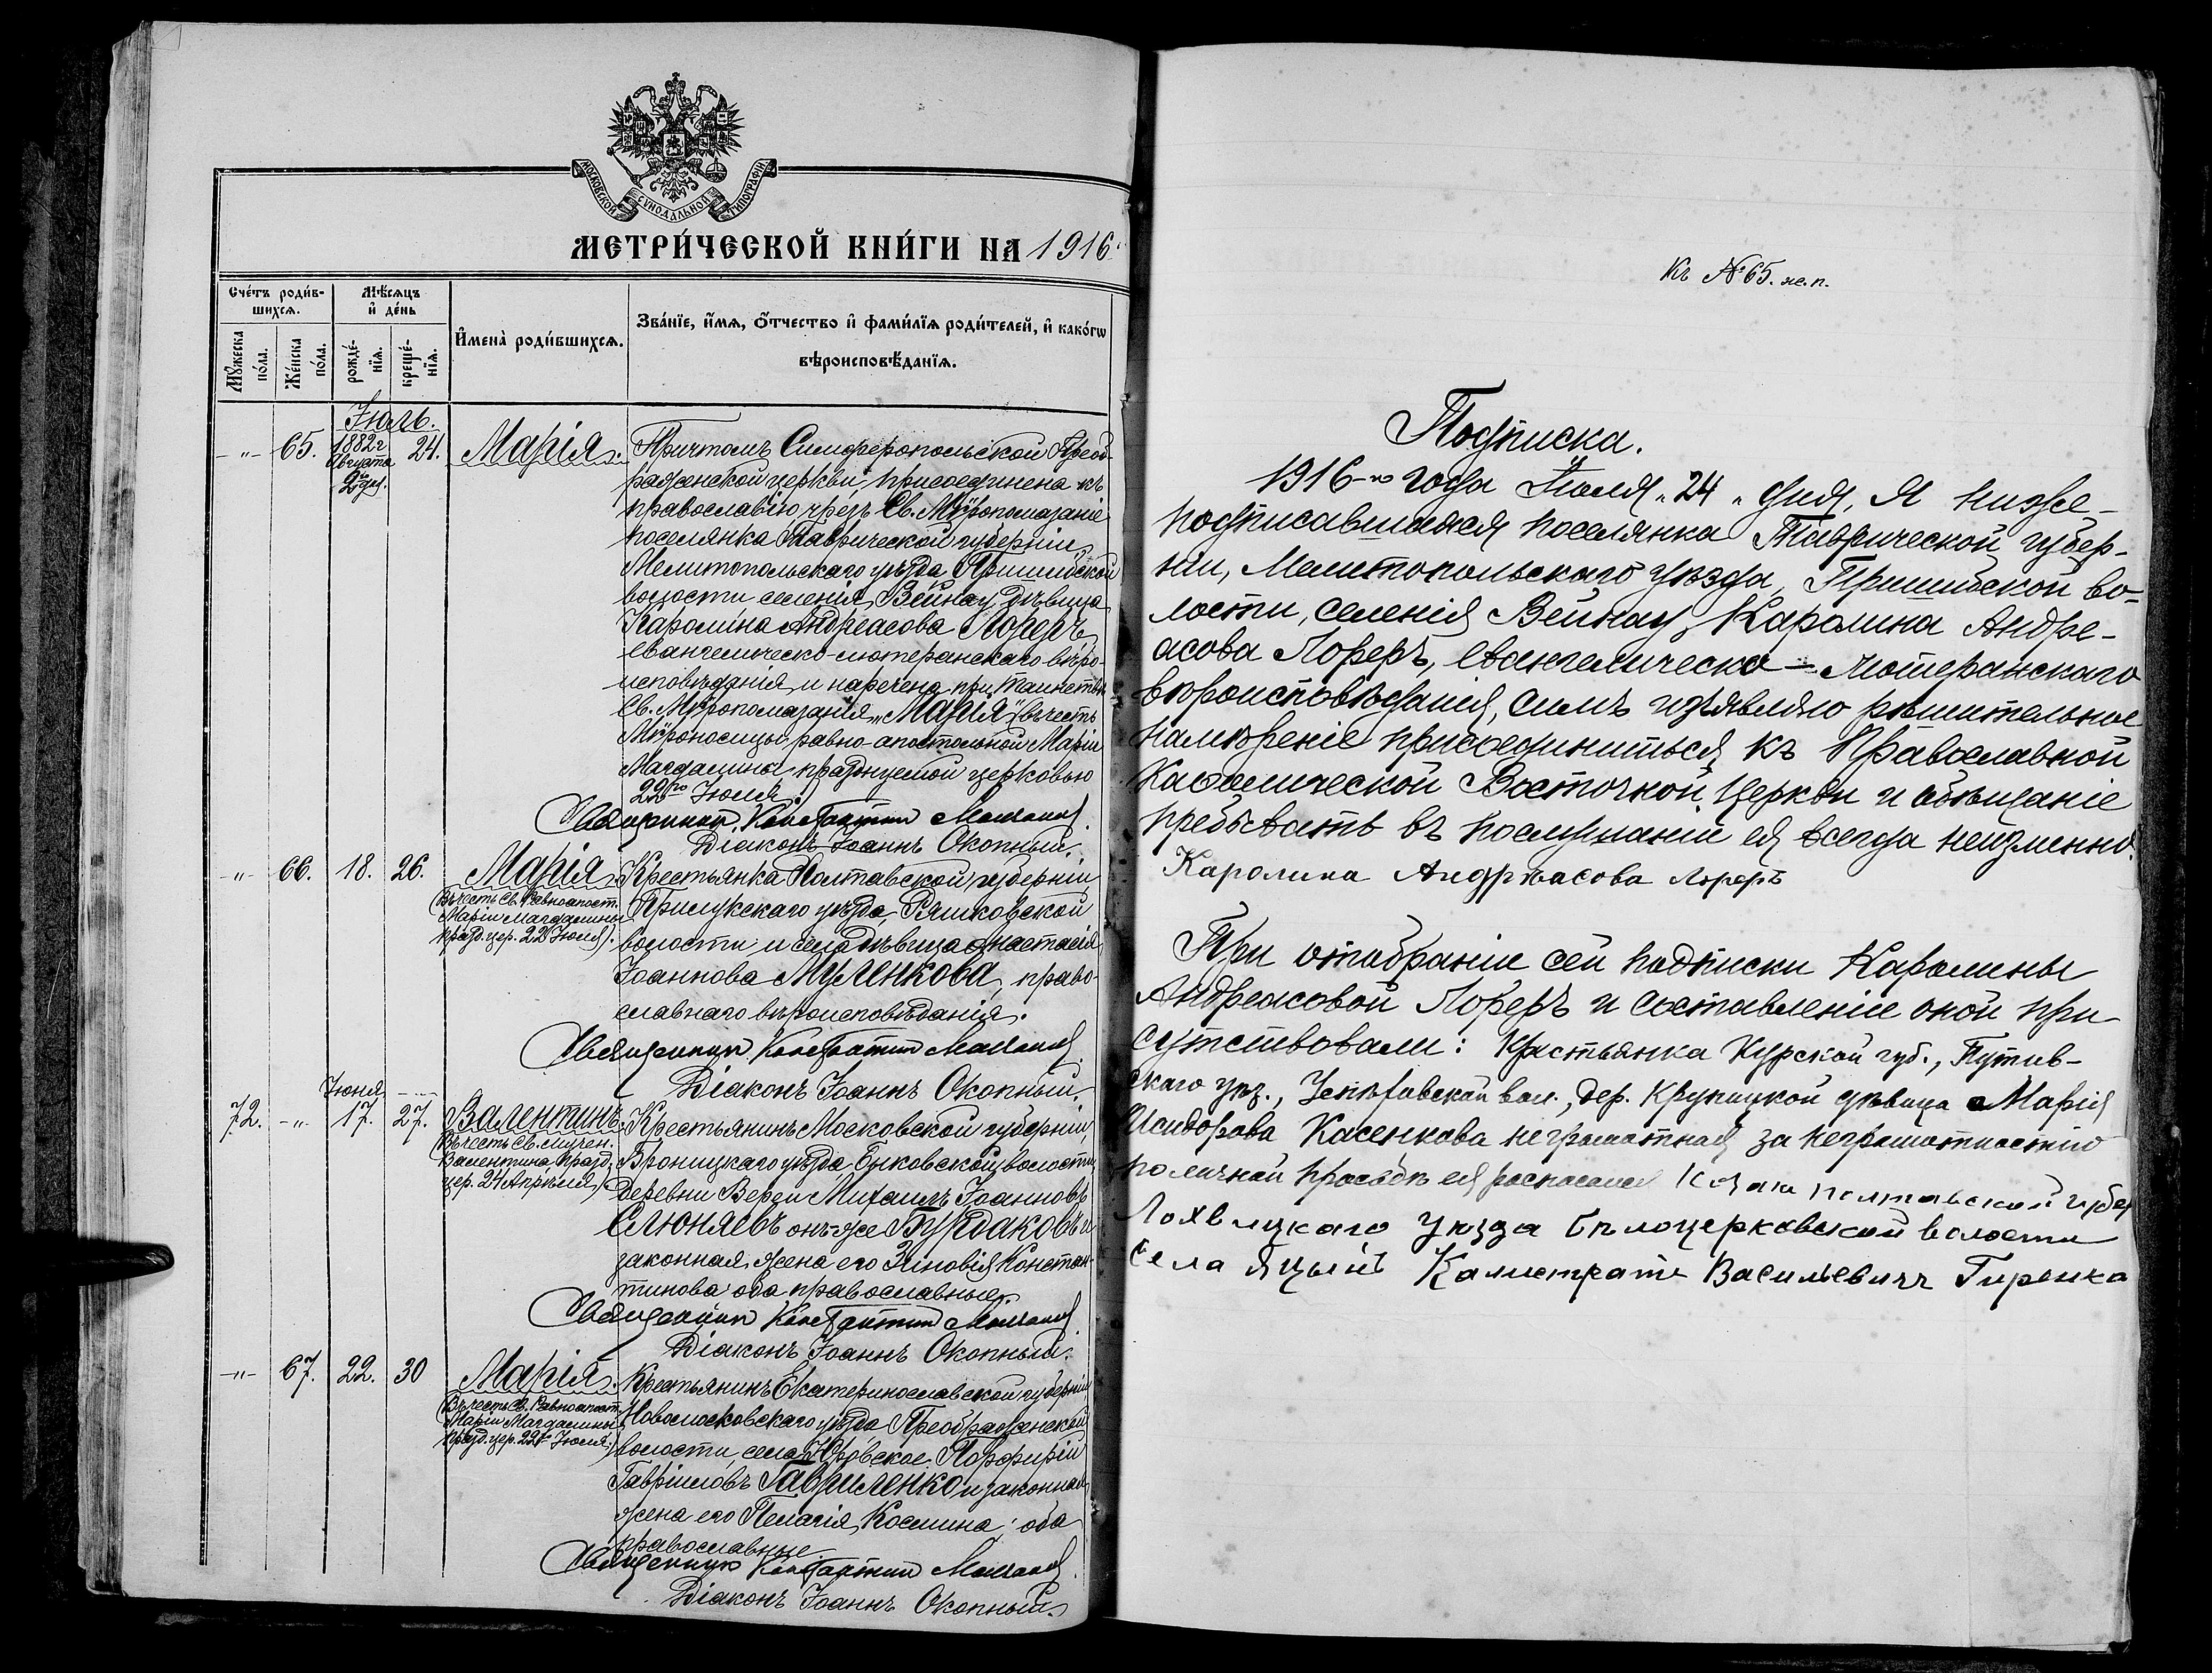 МОСКОВСКОЙ СѴНОДАЛЬНОЙ ТИПОГРАФІИ
МЕТРИ́ЧЕСКОЙ КНИ́ГИ НА 1916
Сче́тъ роди́в-
шихсѧ.
Мѣ́сѧцъ
и҆ де́нь
Мꙋ́жеска
по́ла.
Же́нска
по́ла.
рожде́-
нїѧ.
креще́-
нїѧ.
И҆мена̀ роди́вшихсѧ.
Зва́нїе, и҆́мѧ, ѻ҆́тчество и҆ фами́лїѧ роди́телей, и҆ како́гѡ
вѣроисповѣ́данїѧ.
Іюль.
-"- 65. 1882 г. Августа 2 дня. 24. Марія.
Причтомъ Симферопольской Преоб-
раженской церкви, присоединена къ
православію чрезъ Св. Мѵропомазаніе
поселянка Таврической губерніи,
Мелитопольскаго уѣзда Пришибской
волости селенія Вейнау дѣвица
Каролина Андреасова Лореръ,
евангелическо-лютеранскаго вѣро-
исповѣданія и наречена при таинствѣ
Св. Мѵропомазанія „Марія" въ честь
Мѵроносицы равно-апостольной Маріи
Магдалины, празднуемой церковью
22го Іюля.
Священникъ Константинъ
Діаконъ Іоаннъ Окопный.
-"- 66. 18. 26. Марія.
(Въ честь Св. Равноапост.
Маріи Магдалины
празд. цер. 22 Іюля).
Крестьянка Полтавской губерніи,
Прилукскаго уѣзда, Ряшковской
волости и села дѣвица Анастасія
Іоаннова Муленкова, право-
славнаго вѣроисповѣданія.
Священникъ Константинъ
Діаконъ Іоаннъ Окопный.
Іюня
72. -"- 17. 27. Валентинъ.
(Въ честь Св. мучен.
Валентина празд.
цер. 24 Апрѣля).
Крестьянинъ Московской губерніи,
Броницкаго уѣзда, Быковской волости
деревни Михаилъ Іоанновъ
Слюняевъ онъ-же Бурдаковъ и
законная жена его Зиновія Констан-
тинова оба православные.
Священникъ Константинъ
Діаконъ Іоаннъ Окопный.
-"- 67. 22. 30 Марія.
(Въ честь Св. Равноапост.
Маріи Магдалины
празд. цер. 22 Іюля).
Крестьянинъ Екатеринославской губерніи
Новомосковскаго уѣзда Преображенской
волости, села Юрьевское Порфирій
Гавріиловъ Гавриленко и законная
жена его Пелагія Космина; оба
православные.
Священникъ Константинъ
Діаконъ Іоаннъ Окопный.
Къ № 65. ж. п.
Подписка.
1916-го года Іюля „24" дня, Я ниже-
подписавшаяся поселянка Таврической губер-
ніи, Мелитопольскаго уѣзда, Пришибской во-
лости, селенія Вейнау, Каролина Андре-
асова Лореръ, евангелическо-лютеранскаго
вѣроисповѣданія, симъ изъявляю рѣшительное
намѣреніе присоединиться къ Православной
Каѳолической Восточной Церкви и обѣщаніе
пребывать въ послушаніи ея всегда неизмѣнно.
Каролина Андрѣасова Лореръ
При отобраніи сей подписки Каролины
Андреасовой Лореръ и составленіе оной при-
сутствовали: Крестьянка Курской губ., Путив-
скаго уѣз., вол., дер. Крупицкой дѣвица Марія
Исидорова Касенкова неграмотная, за неграмотностію
по личной просьбѣ ея росписался Козакъ Полтавской губер
Лохвицкаго уѣзда Бѣлоцерковской волости
Села Яцыны Калистратъ Васильевичъ Гиренко